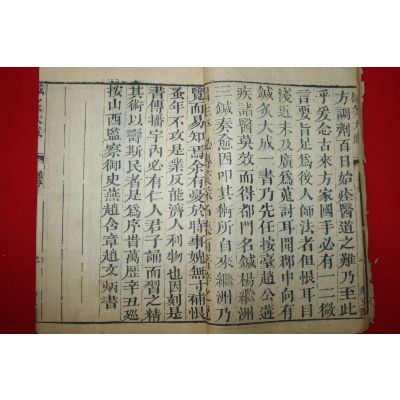 鍼灸大成
方調劑百日始瘥醫道之難乃至此
乎爰念古來方家國手必有一二微
言要旨足爲後人師法者但恨耳目
淺近未及廣爲蒐討耳聞郡中向有
鍼灸大成一書乃先任按臺趙公遘
疾諸醫莫效而得都門名鍼楊繼洲
三鍼奏愈因叩其術所自來繼洲乃
覽而易知焉余有憂於時事媿無寸補恨
蚤年不攻是業反能濟人利物也因刻是
書傳播宇內必有仁人君子誦而習之精
其術以壽斯民者是爲序旹萬曆辛丑巡
按山西監察御史燕趙含章趙文炳書